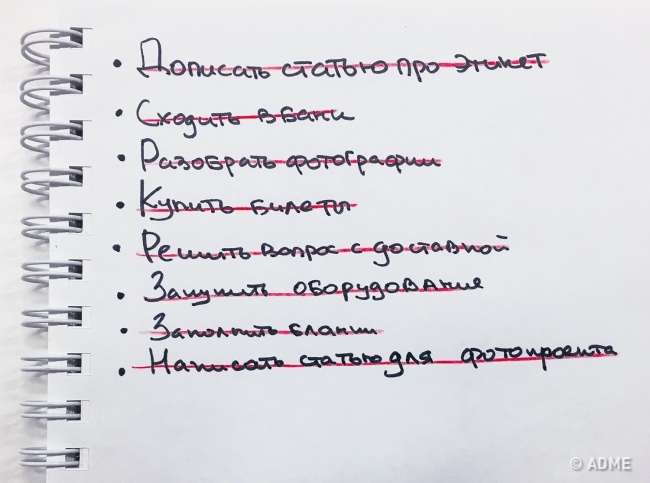 • Дописать статью про этикет
• Сходить в банк
• Разобрать фотографии
• Купить билеты
• Решить вопрос с доставкой
• Закупить оборудование
• Заполнить бланки
• Написать статью для фотопроекта
© ADME